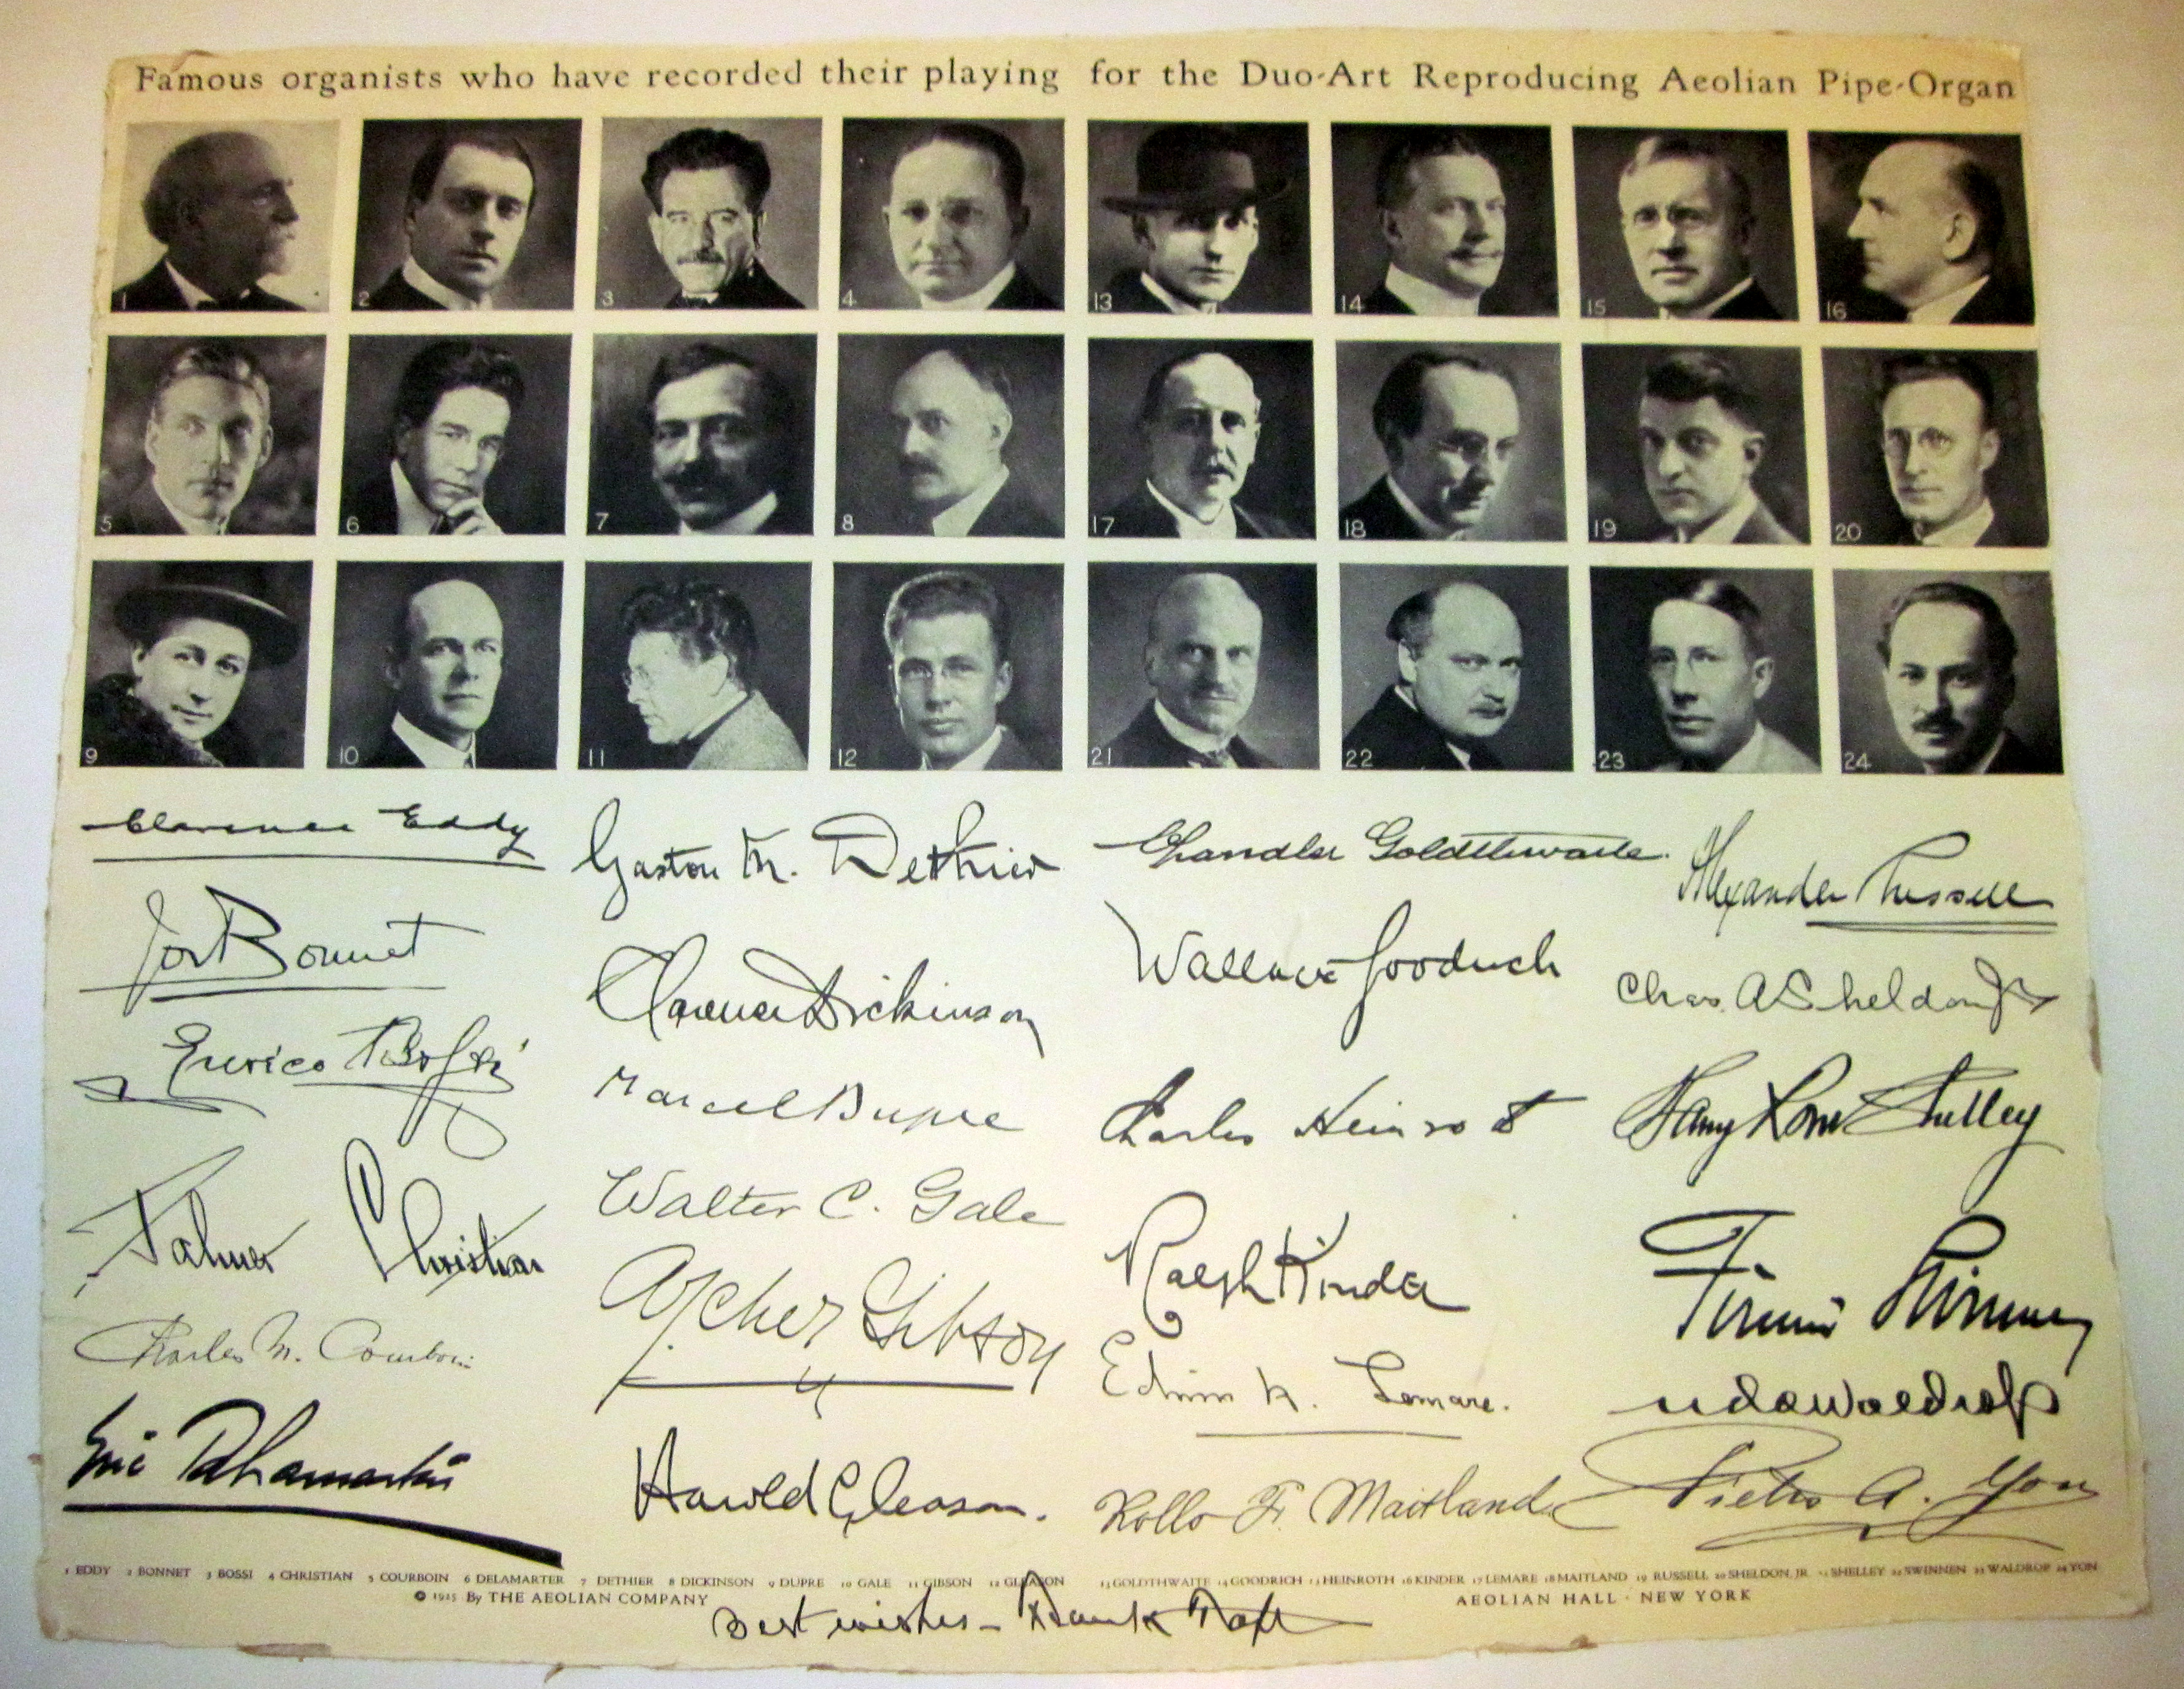 Famous organists who have recorded their playing for the Duo-Art Reproducing Aeolian Pipe-Organ
1 2 3 4 13 14 15 16
5 6 7 8 17 18 19 20
9 10 11 12 21 22 23 24
Clarence Eddy
Jos Bonnet
Enrico Bossi
Palmer Christian
Charles M. Courboin
Eric Delamarter
Gaston M. Dethier
Clarence Dickinson
Marcel Dupre
Walter C. Gale
Archer Gibson
Harold Gleason.
Chandler Goldthwaite.
Wallace Goodrich
Charles Heinroth
Ralph Kinder
Edwin H. Lemare.
Rollo F. Maitland
Alexander Russell
Chas. A Sheldon Jr
Harry Rowe Shelley
Firmin Swinnen
Uda Waldrop
Pietro A. Yon
1 EDDY 2 BONNET 3 BOSSI 4 CHRISTIAN 5 COURBOIN 6 DELAMARTER 7 DETHIER 8 DICKINSON 9 DUPRE 10 GALE 11 GIBSON 12 GLEASON 13 GOLDTHWAITE 14 GOODRICH 15 HEINROTH 16 KINDER 17 LEMARE 18 MAITLAND 19 RUSSELL 20 SHELDON, JR. 21 SHELLEY 22 SWINNEN 23 WALDROP 24 YON
© 1925 By THE AEOLIAN COMPANY AEOLIAN HALL · NEW YORK
Best wishes – Frank Taft